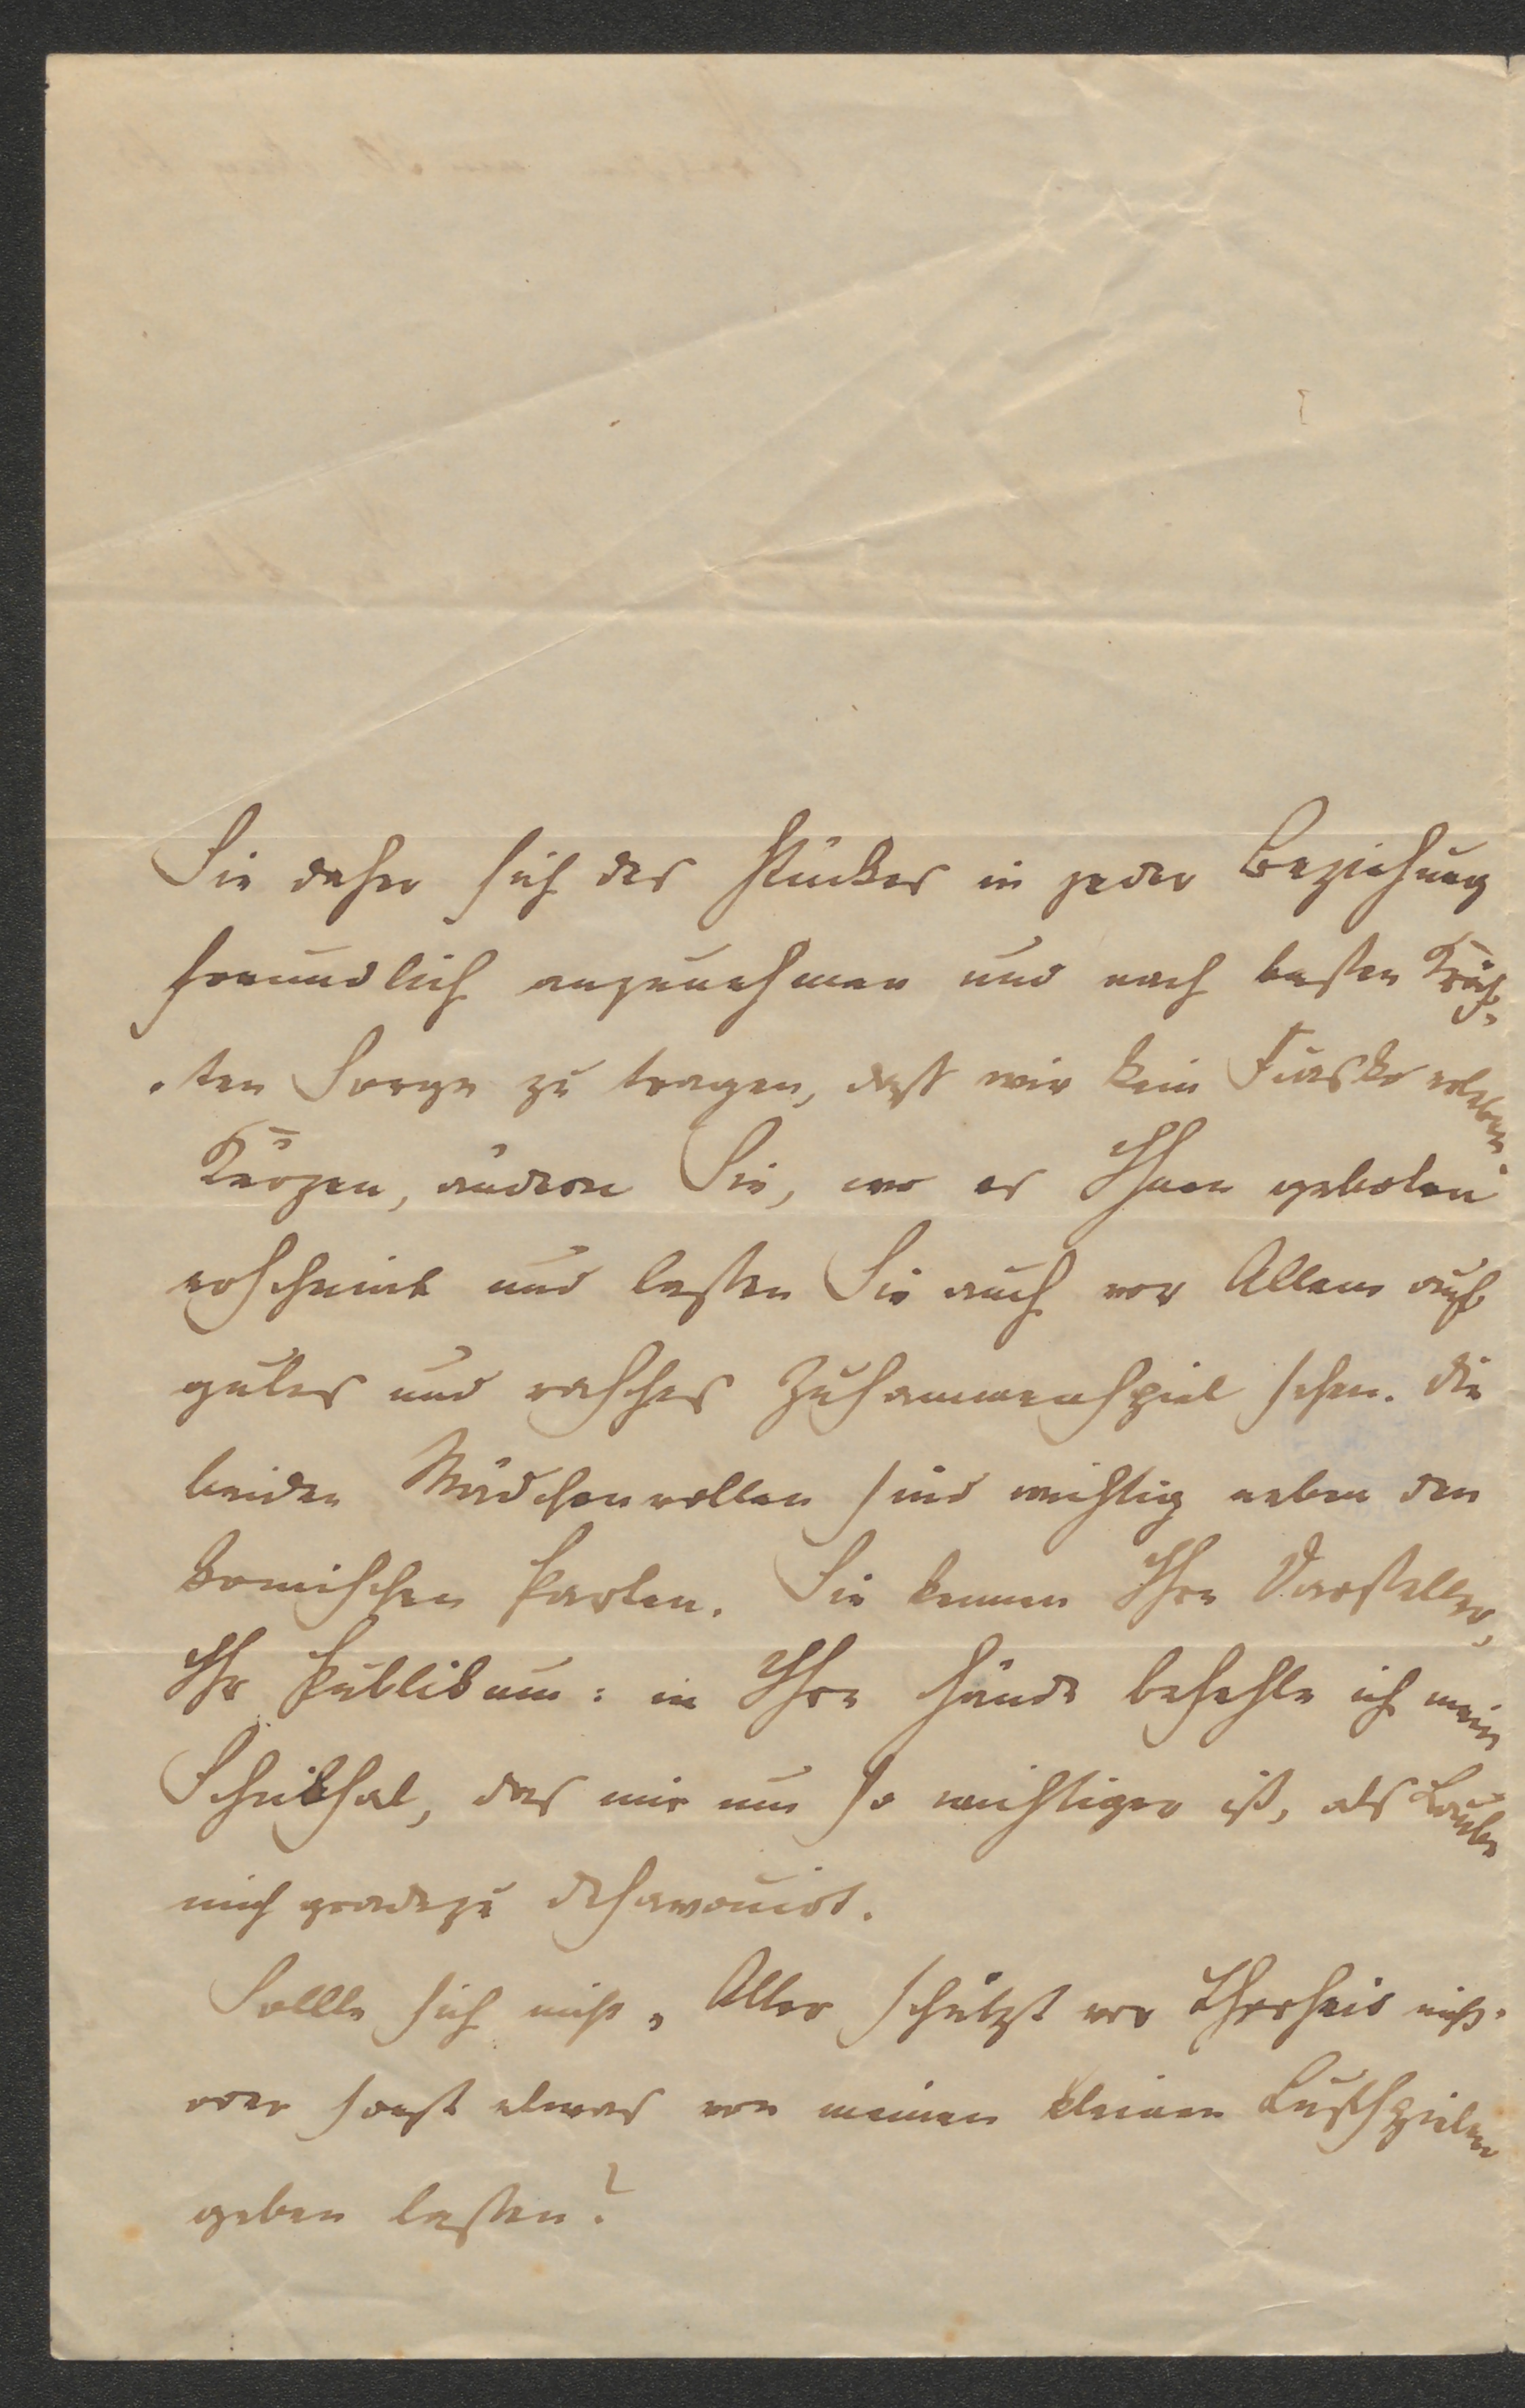 Sie daher sich des Stückes in jeder Beziehung
freundlich anzunehmen und nach besten Kräf-
-ten Sorge zu tragen, daß wir kein Fiasko erleben.
Kürzen, ändern Sie, wo es Ihnen geboten
erscheint und lassen Sie auch vor Allem auf
gutes und rasches Zusammenspiel sehen. Die
beiden Mädchenrollen sind wichtig neben den
komischen Parten. Sie kennen Ihre Darsteller,
Ihr Publikum: in Ihre Hände befehle ich mein
Schicksal, das mir um so wichtiger ist, als Laube
mich gradezu desavouirt.
Sollte sich nicht „Alter schützt vor Thorheit nicht"
oder sonst etwas von meinen kleinen Lustspielen
geben lassen?